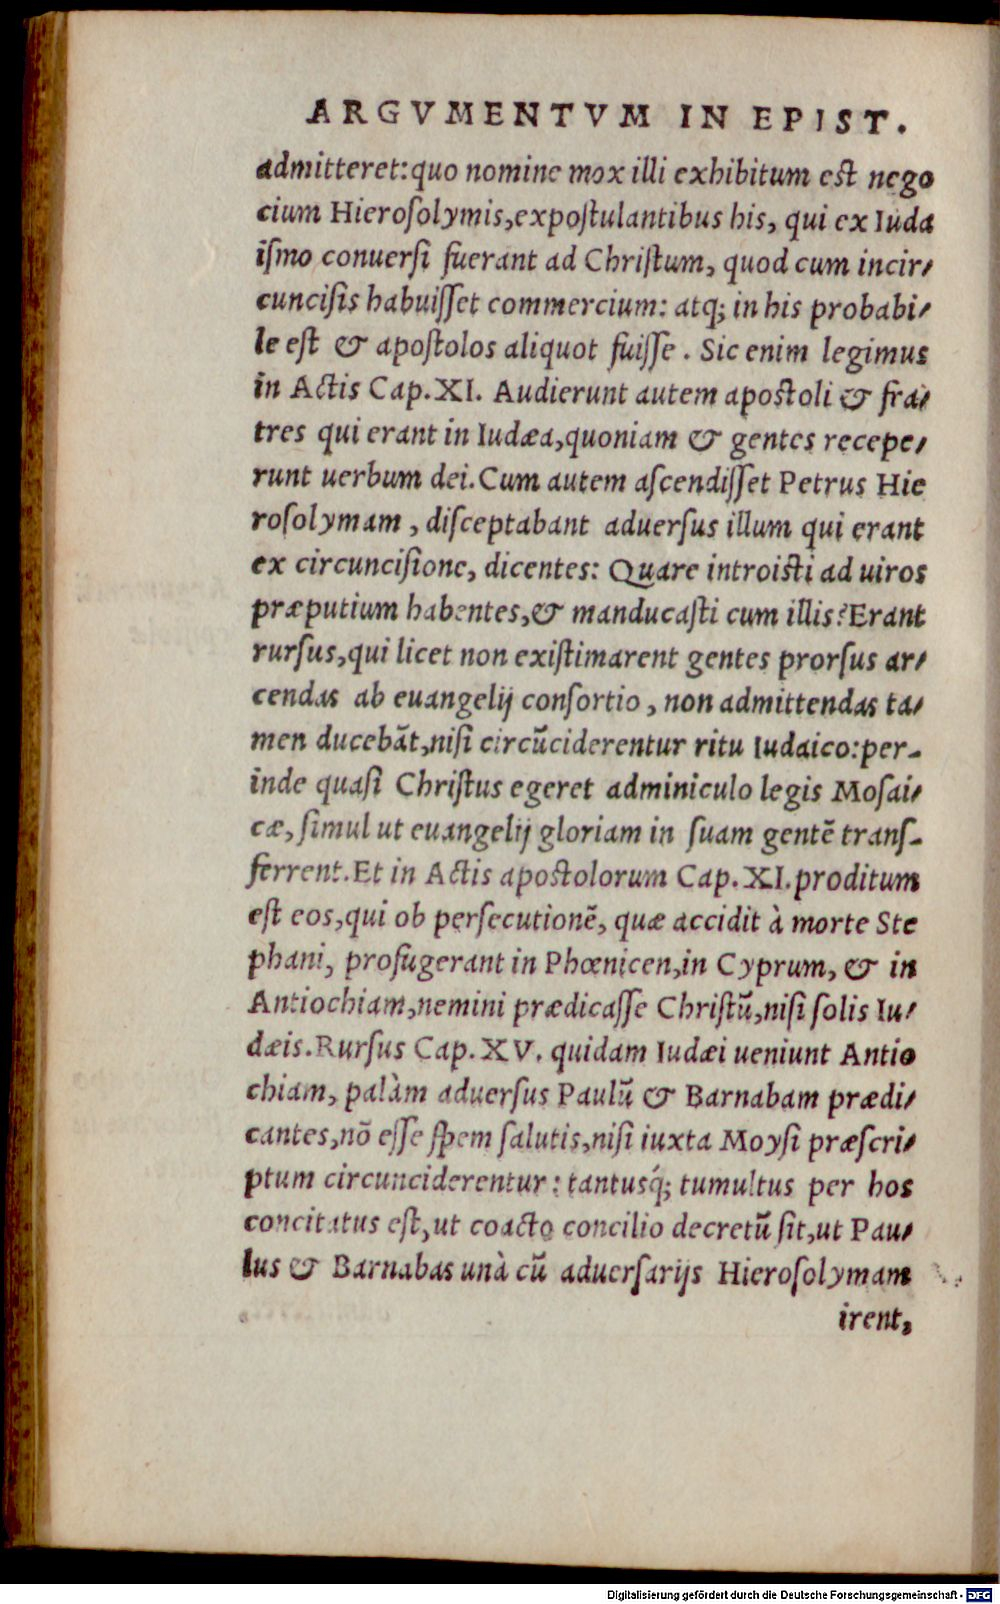 ARGVMENTVM IN EPIST.
admitteret:quo nomine mox illi exhibitum est nego
cium Hierosolymis,expostulantibus his, qui ex Iuda
ismo conuersi fuerant ad Christum, quod cum incir-
cuncisis habuisset commercium: atq; in his probabi-
le est & apostolos aliquot fuisse . Sic enim legimus
in Actis Cap.XI. Audierunt autem apostoli & fra-
tres qui erant in Iudæa,quoniam & gentes recepe-
runt uerbum dei.Cum autem ascendisset Petrus Hie
rosolymam , disceptabant aduersus illum qui erant
ex circuncisione, dicentes: Quare introisti ad uiros
præputium habentes,& manducasti cum illis?Erant
rursus,qui licet non existimarent gentes prorsus ar-
cendas ab euangelij consortio , non admittendas ta-
men ducebāt,nisi circūciderentur ritu Iudaico:per-
inde quasi Christus egeret adminiculo legis Mosai-
cæ, simul ut euangelij gloriam in suam gentē trans-
ferrent.Et in Actis apostolorum Cap.XI.proditum
est eos,qui ob persecutionē, quæ accidit à morte Ste
phani, profugerant in Phœnicen,in Cyprum, & in
Antiochiam,nemini prædicasse Christū,nisi solis Iu-
dæis.Rursus Cap.XV. quidam Iudæi ueniunt Antio
chiam, palàm aduersus Paulū & Barnabam prædi-
cantes,nō esse spem salutis,nisi iuxta Moysi præscri-
ptum circunciderentur: tantusq́; tumultus per hos
concitatus est,ut coacto concilio decretū sit,ut Pau-
lus & Barnabas unà cū aduersarijs Hierosolymam
irent,
Digitalisierung gefördert durch die Deutsche Forschungsgemeinschaft - DFG